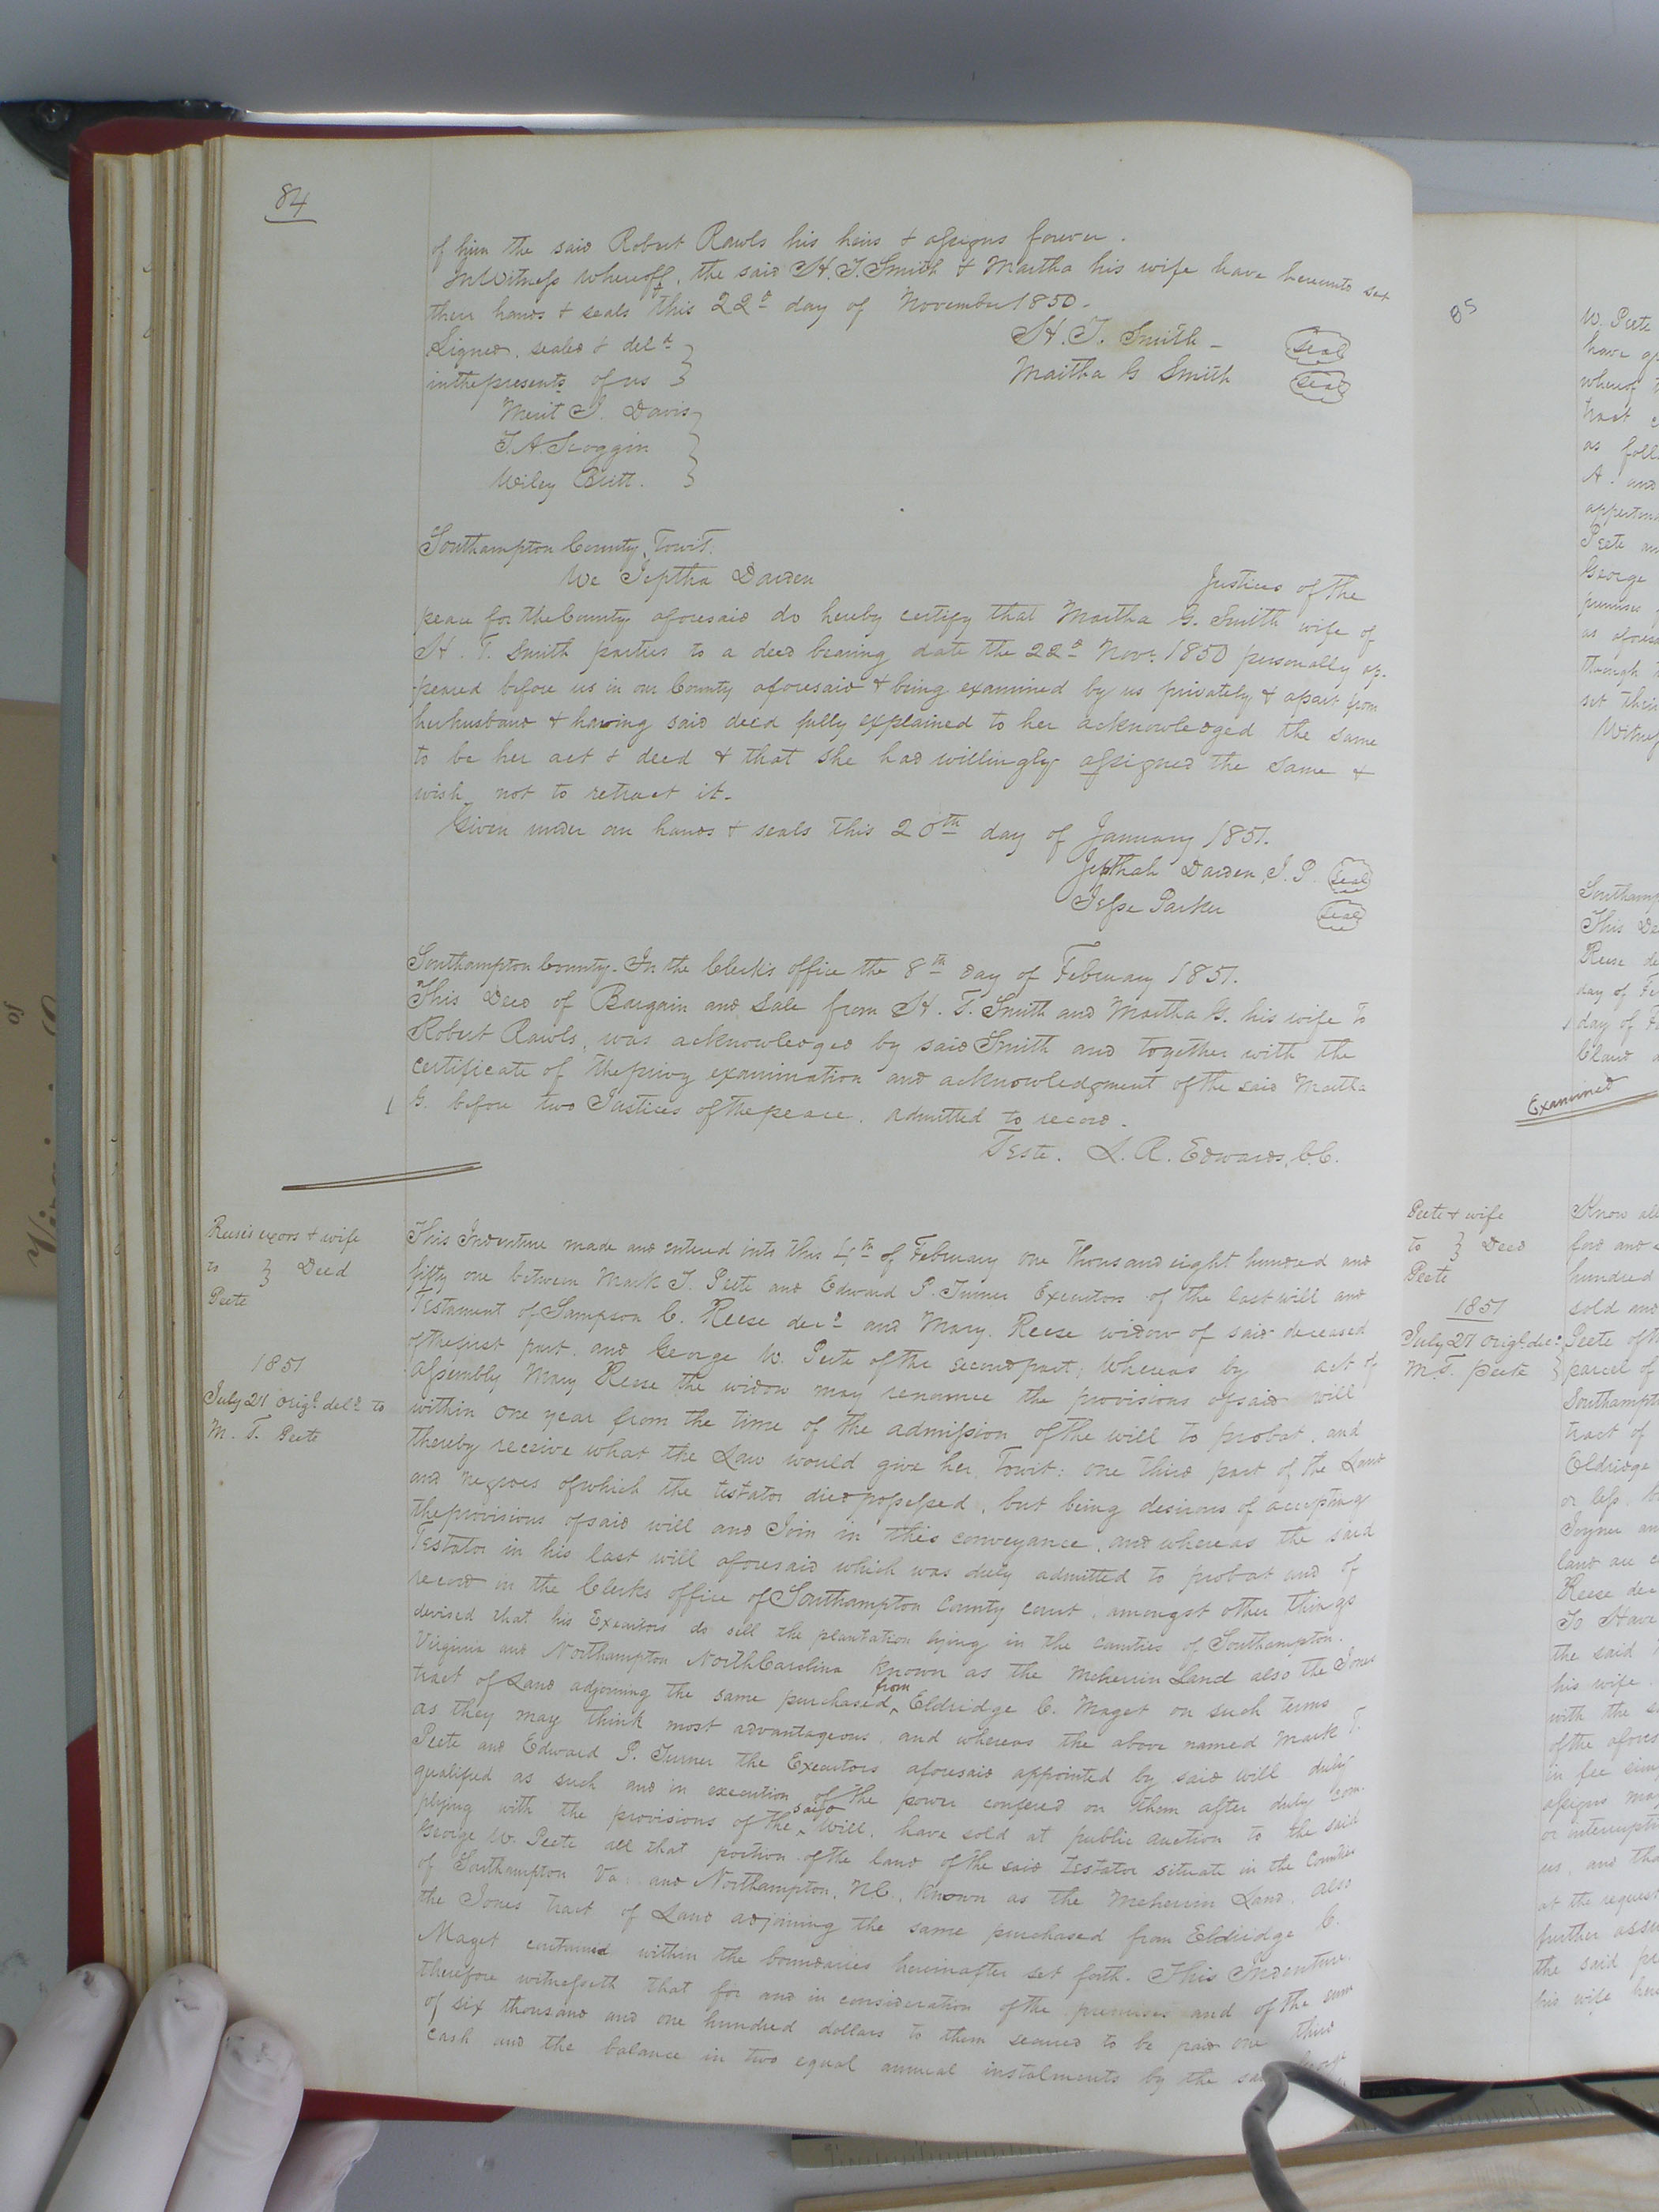 84
of him the said Robert Rawls his heirs & assigns forever.
In Witness whereoff, the said H. T. Smith & Martha his wife have hereunto set
their hands & seals this 22d day of November 1850.
Signed, sealed & deld
in the presents of us
H. T. Smith seal
Martha G Smith seal
Merit J. Davis
T. A. Scoggin
Wiley Britt.
Southampton County, Towit.
We Jeptha Darden Justices of the
peace for the County aforesaid do hereby certify that Martha G. Smith wife of
H. T. Smith parties to a deed bearing date the 22d Novr. 1850 personally ap-
peared before us in our County aforesaid & being examined by us privately & apart from
her husband & having said deed fully explained to her acknowledged the same
to be her act & deed & that she had willingly assigned the same &
wish not to retract it.
Given under our hands & seals this 20th day of January 1851.
Jepthah Darden, J. P. seal
Jesse Parker seal
Southampton County. In the Clerk's office the 8th day of February 1851.
This Deed of Bargain and Sale from H. T. Smith and Martha G. his wife to
Robert Rawls, was acknowledged by said Smith and together with the
certificate of the privy examination and acknowledgment of the said Martha
G. before two Justices of the peace. admitted to record.
Teste. L. R. Edwards, C.C.
Reese's exors & wife
to } Deed
Peete
1851
July 21 origl. deld to
M. T. Peete
This Indenture made and entered into this 4th of February one thousand eight hundred and
fifty one between Mark T. Peete and Edward P. Turner Executors of the last will and
Testament of Sampson C. Reese decd and Mary. Reese widow of said deceased
of the first part. and George W. Peete of the second part; Whereas by act of
assembly Mary Reese the widow may renounce the provisions of said will
within one year from the time of the admission of the will to probat. and
thereby receive what the Law would give her, Towit: one third part of the Land
and negroes of which the testator died possessed, but being desirous of accepting
the provisions of said will and Join in this conveyance, and whereas the said
Testator in his last will aforesaid which was duly admitted to probat and of
record in the Clerks office of Southampton County court, amongst other things
devised that his Executors do sell the plantation lying in the counties of Southampton.
Virginia and Northampton North Carolina known as the Meherrin Land also the Jones
tract of Land adjoining the same purchased from Eldridge C. Maget on such terms
as they may think most advantageous. and whereas the above named Mark T.
Peete and Edward P. Turner the Executors aforesaid appointed by said will duly
qualified as such and in execution of the power confered on them after duly com-
plying with the provisions of the said Will, have sold at public auction to the said
George W. Peete all that portion of the land of the said testator situate in the Counties
of Southampton Va. and Northampton, N.C, known as the Meherrin Land, also
the Jones tract of Land adjoining the same purchased from Eldridge C.
Maget contained within the boundaries hereinafter set forth. This Indenture
therefore witnesseth that for and in consideration of the premises and of the sum
of six thousand and one hundred dollars to them secured to be paid one third
cash and the balance in two equal annual instalments by the
85
W. Peete
have
whereof
tract
as foll
A. and
Peete an
George
premises
as afores
through
set their
Witness
Southamp
This De
Reese de
day of Fe
day of F
Examined
Peete & wife
to } Deed
Peete
1851
July 21 origl. del
M. T. Peete
Know all
hundred
sold and
Peete of th
parcel of
Southampt
tract of
Eldridge
or less,
Joyner an
land are
Reese dec
To Have
the said
his wife
with the
of the afores
in fee simp
assigns may
or interrupti
us, and tha
at the request
further assu
the said pe
his wife here